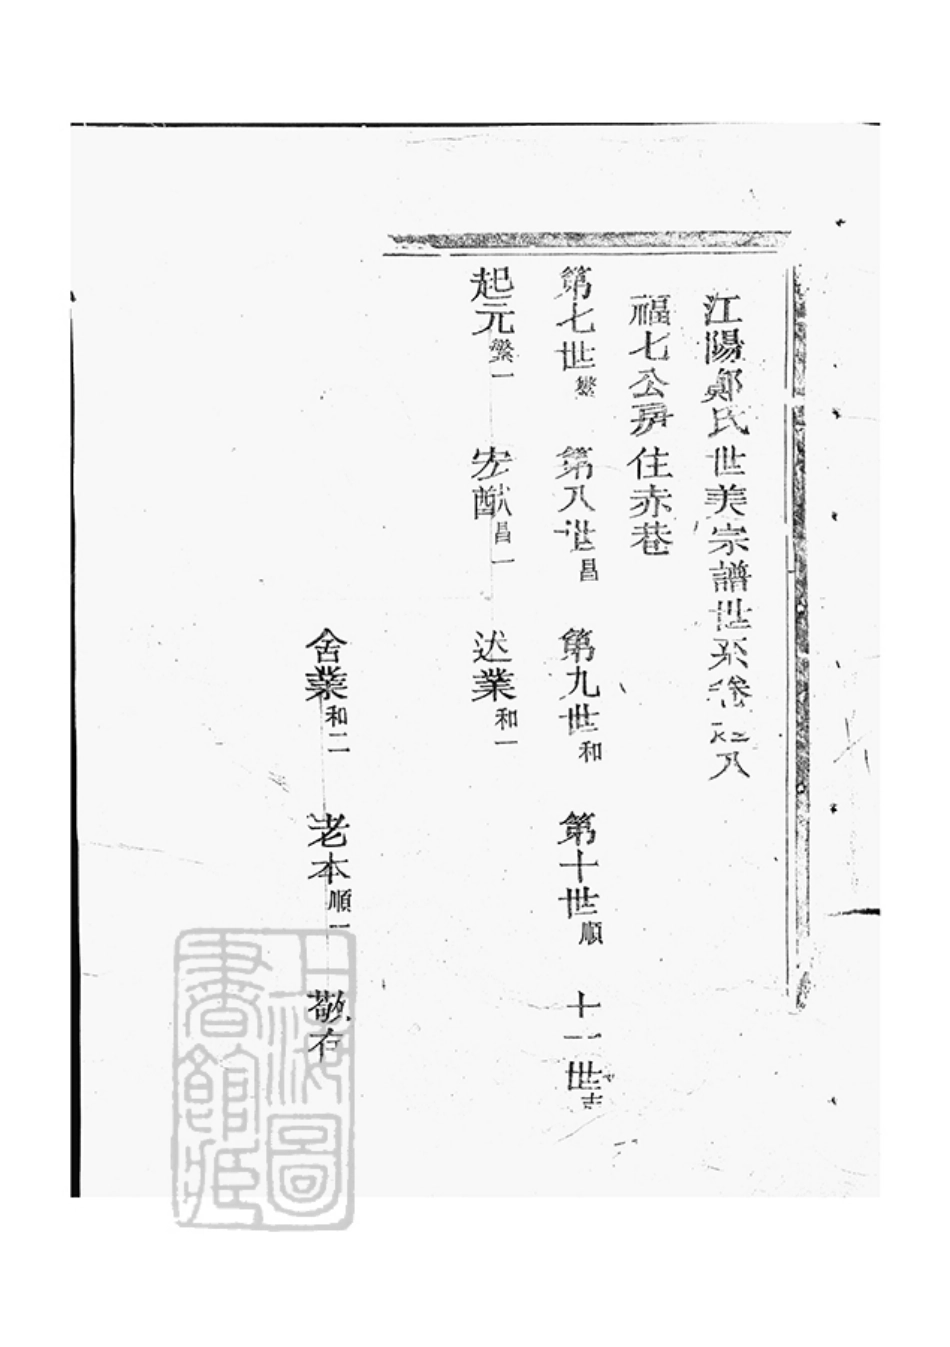 江陽鄭氏世美宗譜世系卷之八
福七公房住赤巷
第七世繁　第八世昌　第九世和　第十世順　十一世志
起元繁一　宏猷昌一　述業和一
舍業和二　老本順一　敬存
上海圖
書館藏